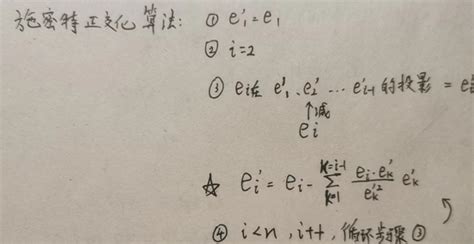 施密特正交化算法: ① e₁' = e₁
② i=2
③ eᵢ在 e'₁、e₂' … e'ᵢ₋₁ 的投影 =
↑减
eᵢ
☆ eᵢ' = eᵢ - ∑_{k=1}^{k=i-1} \frac{eᵢ·e'ₖ}{e'ₖ²} e'ₖ
④ i<n, i++, 循环步骤③